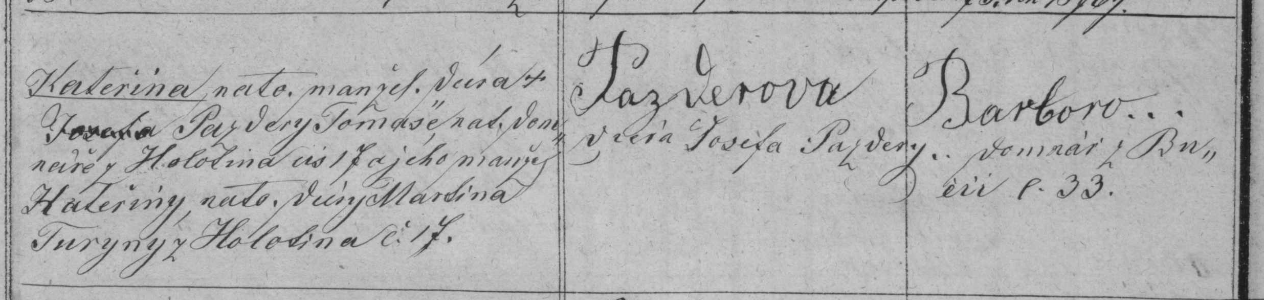 Kateřina, nato. manžel. dcéra †
Pazdery Tomáše nat. dom„
náře z Holotína čís 17 a jeho manžel
Kateřiny, nato. dcéry Martina
Turyny z Holotina č. 17.
Pazderova
dcéra Josefa Pazdery..
Barboro...
domnár z Bu„
čii č. 33.